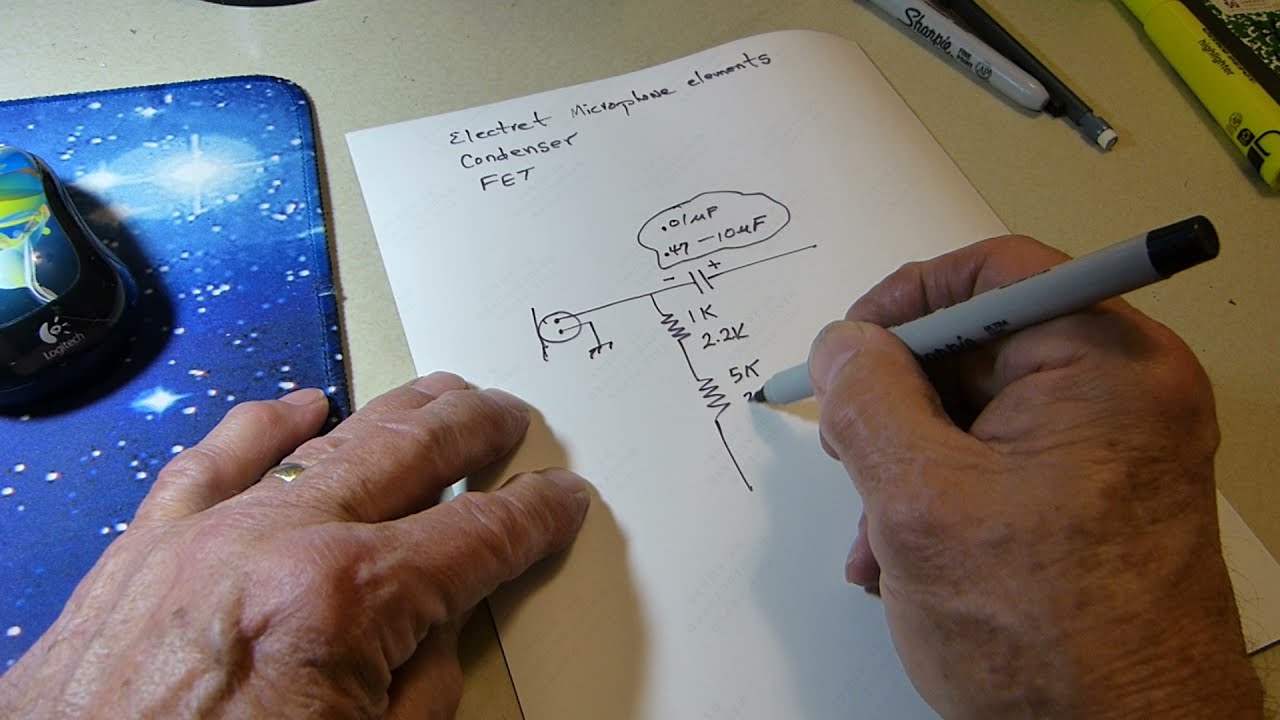 Electret Microphone elements
Condenser
FET
.01µF
.47-10µF
- +
1K
2.2K
5K
Sharpie
highlighter
Logitech
Sharpie